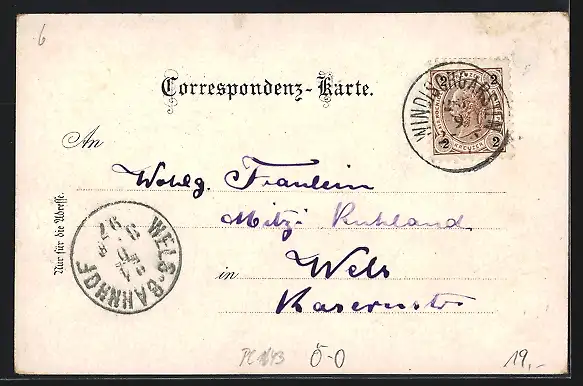 6
Correspondenz-Karte.
2 2
WINDISCHGARSTEN
2 KREUZER 2
An
Wohlg. Fräulein
Mitzi Ruhland
in Wels
Nur für die Adresse.
WELS-BAHNHOF
97
Ö-O
19,-